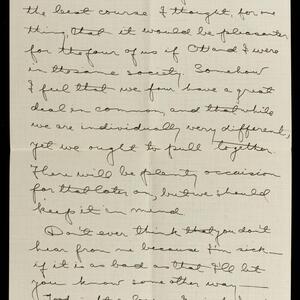 the best course I thought, for one
thing, that it would be pleasanter
for the four of us if Ott and I were
in the same society. Somehow
I feel that we four have a great
deal in common, and that while
we are individually very different,
yet we ought to pull together.
There will be plenty occaision
for that later on, but we should
keep it in mind.
Don't ever think that you don't
hear from me because I'm sick—
if it is as bad as that I'll let
you know some other way—